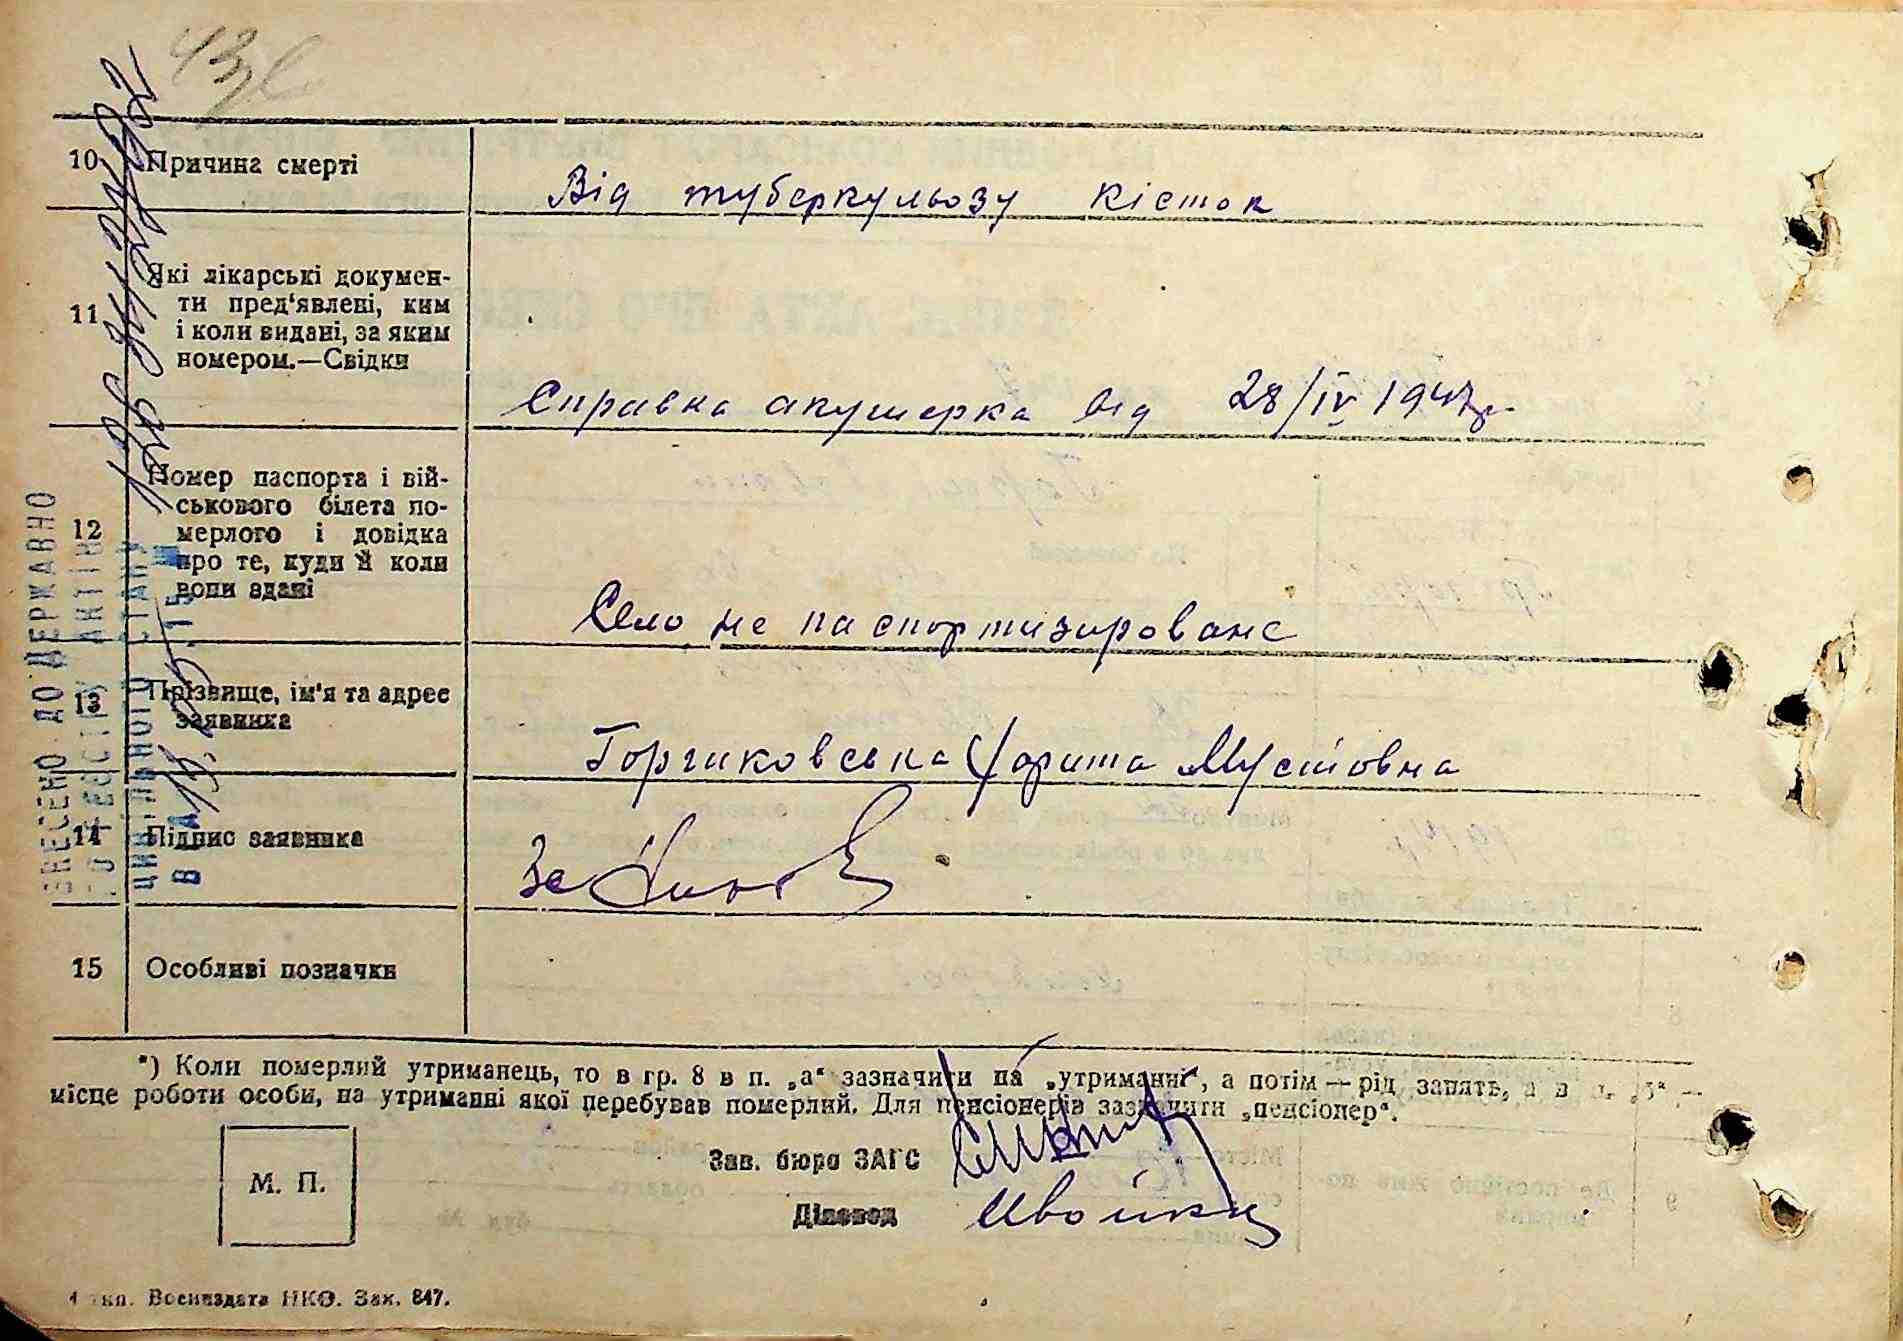 10
Причина смерті
Від туберкульозу кісток
11
Які лікарські докумен-
ти пред'явлені, ким
і коли видані, за яким
номером.—Свідки
Справка акушерка від 28/IV 1947р.
12
Номер паспорта і вій-
ськового білета по-
мерлого і довідка
про те, куди й коли
вони здані
Село не паспортизироване
13
Прізвище, ім'я та адрес
заявника
14
Підпис заявника
15
Особливі позначки
*) Коли померлий утриманець, то в гр. 8 в п. „а“ зазначити на „утриманні“, а потім — рід занять, а в п.
місце роботи особи, на утриманні якої перебував померлий. Для пенсіонерів зазначити „пенсіонер“.
М. П.
Зав. бюро ЗАГС
Діловод
Воениздата НКО. Зак. 847.
ВНЕСЕНО ДО ДЕРЖАВНО
ГО РЕЄСТРУ АКТІВ
ЦИВІЛЬНОГО СТАНУ